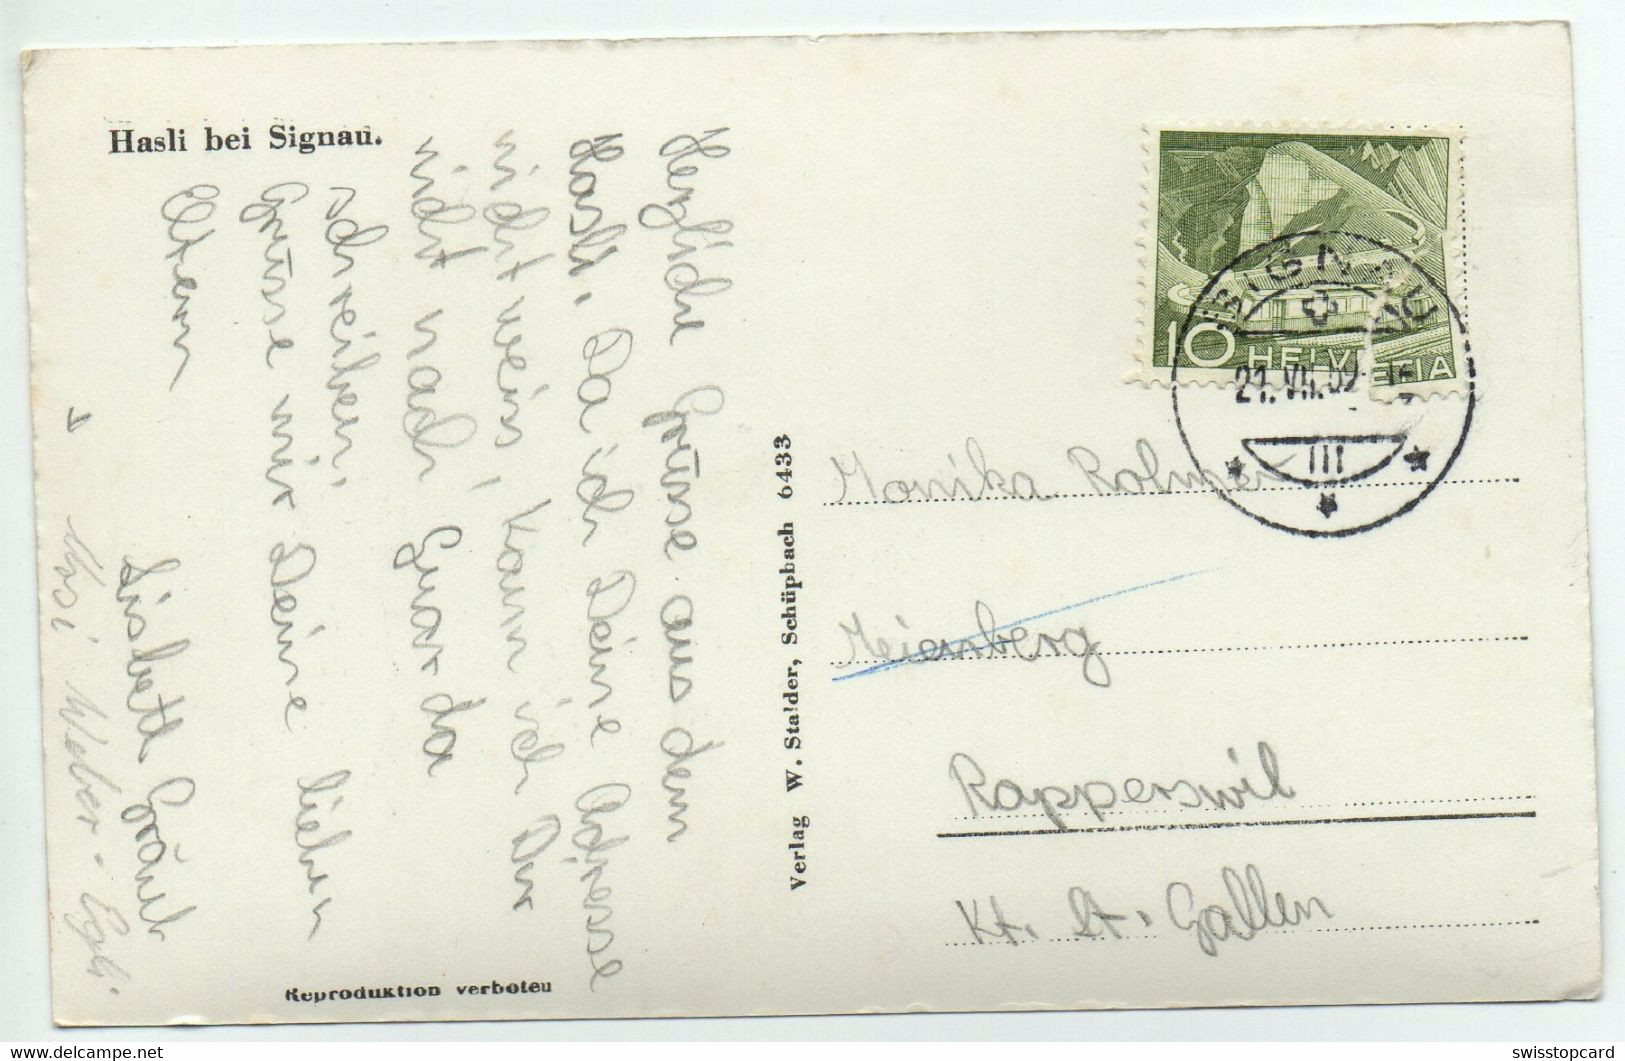 Hasli bei Signau.
Herzliche Grüsse aus dem
Hasli. Da ich Deine Adresse
nicht weis, kann ich Dir
nicht nach Guarda
schreiben.
Grüsse mir Deine lieben
Eltern
Lisbeth
Weber-Egli.
Reproduktion verboten
Verlag W. Stalder, Schüpbach 6433
10 HELVETIA
SIGNAU
21.VII.52
III
Monika Rohner
Meienberg
Rapperswil
Kt. St. Gallen
swisstopcard